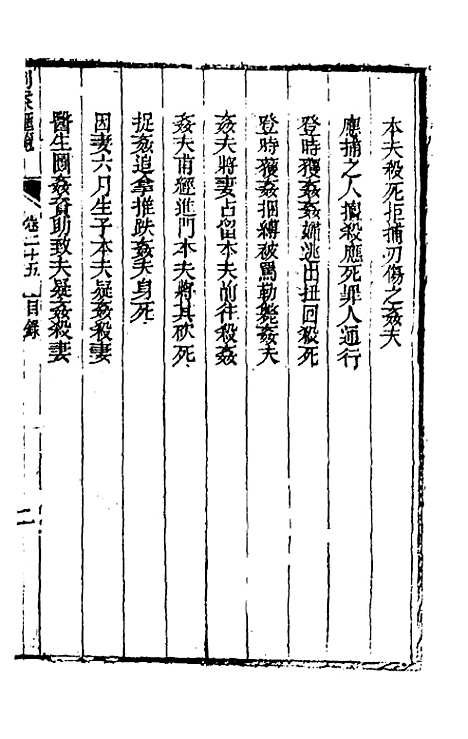 本夫殺死拒捕刃傷之姦夫
應捕之人擅殺應死罪人通行
登時獲姦姦婦逃出扭回殺死
登時獲姦捆縛被罵勒斃姦夫
姦夫將妻占留本夫前往殺姦
姦夫甫經進門本夫將其砍死
捉姦追拿推跌姦夫身死
因妻六月生子本夫疑姦殺妻
醫生圖姦資助致夫疑姦殺妻
卷二十五 目錄 二